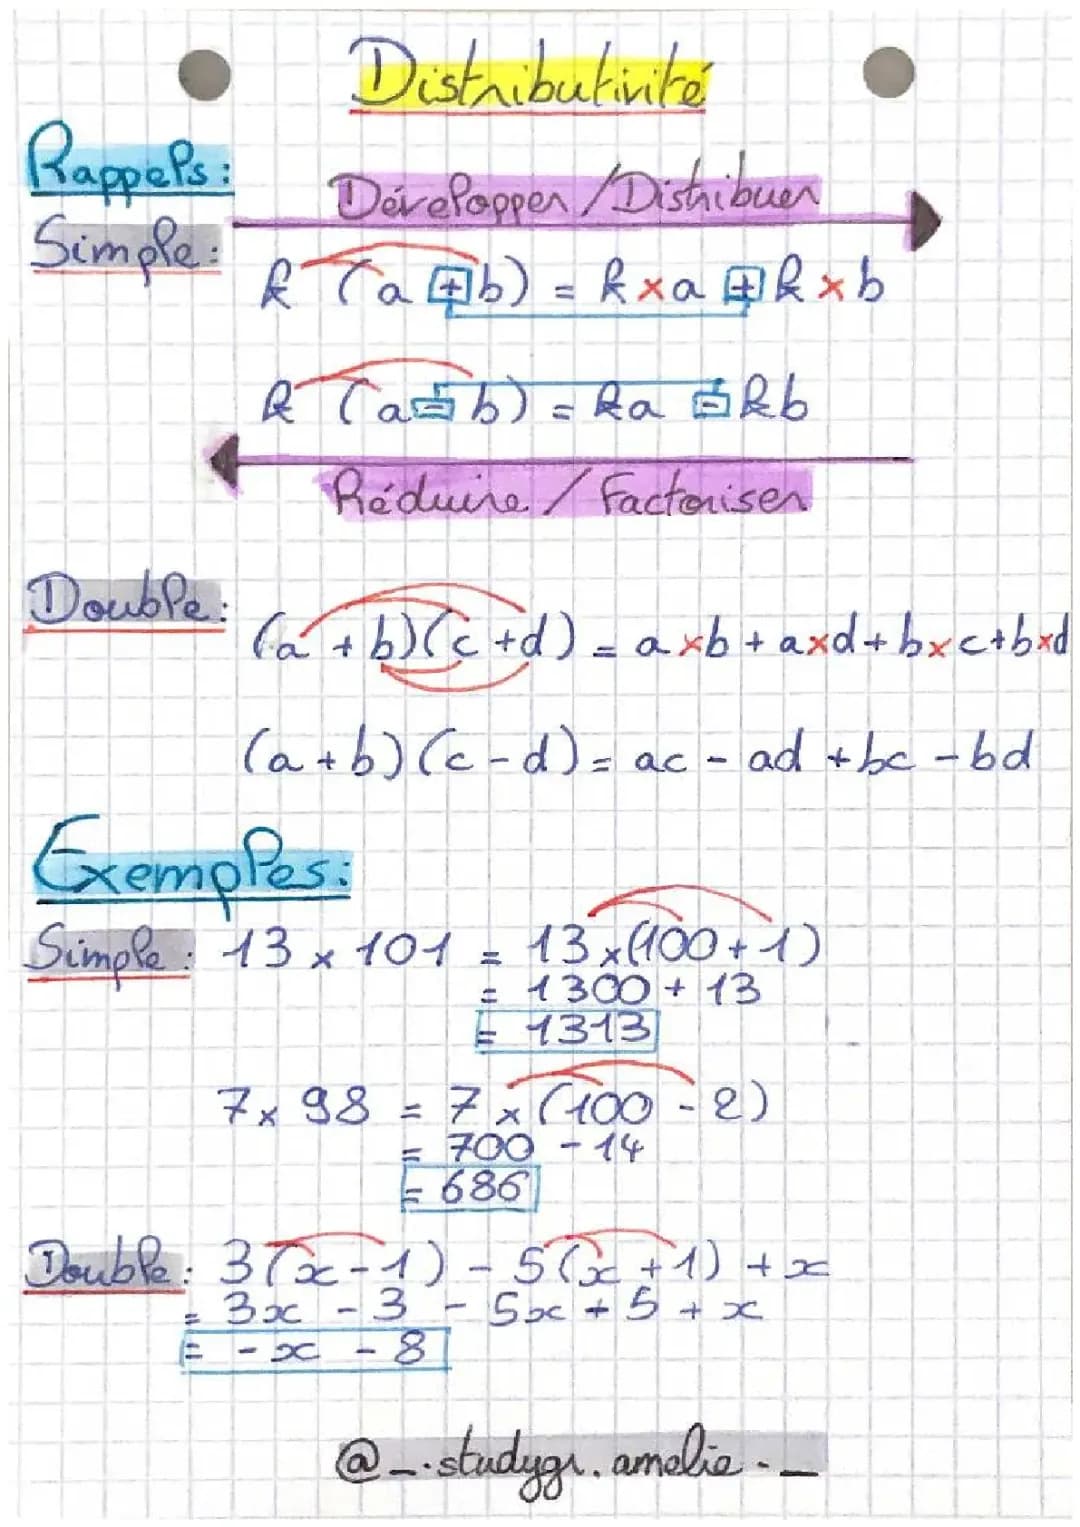 Distributivité
Rappels:
Développer / Distribuer
Simple:
k (a + b) = k × a + k × b
k (a - b) = ka - kb
Réduire / Factoriser
Double:
(a + b)(c + d) = a × b + a × d + b × c + b × d
(a + b)(c - d) = ac - ad + bc - bd
Exemples:
Simple: 13 × 101 = 13 × (100 + 1)
= 1300 + 13
= 1313
7 × 98 = 7 × (100 - 2)
= 700 - 14
= 686
Double: 3(x - 1) - 5(x + 1) + x
= 3x - 3 - 5x + 5 + x
= - x - 8
@_.studygr.amelie._